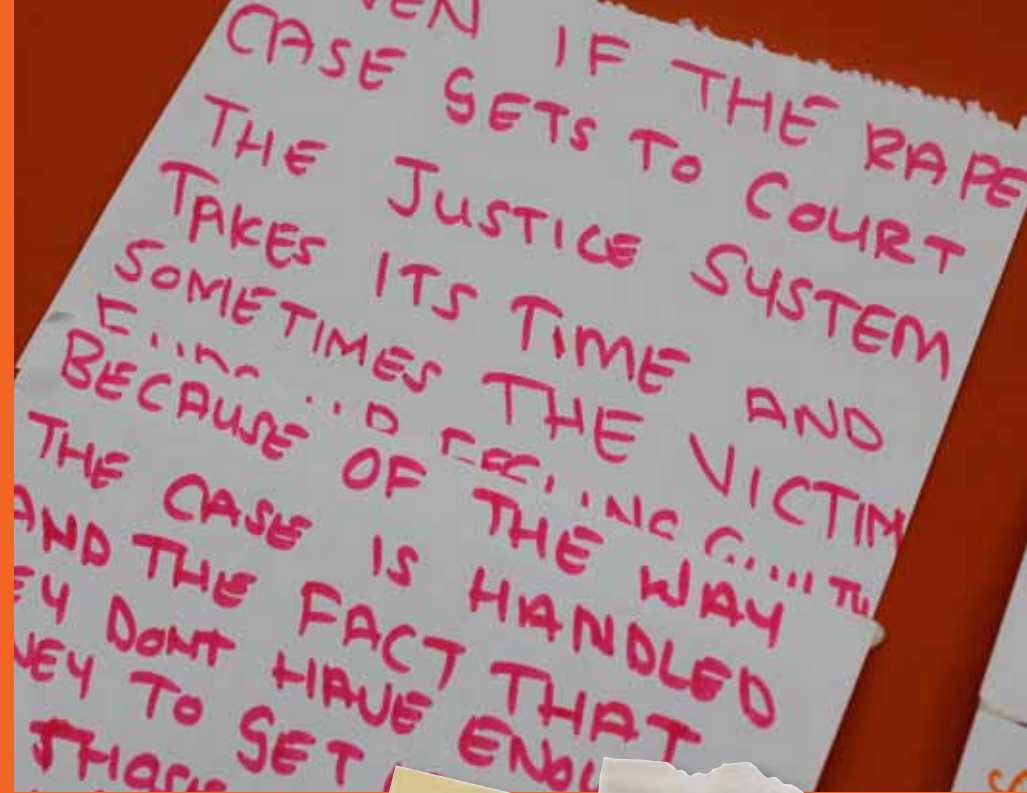 IF THE RAPE
CASE GETS TO COURT
THE JUSTICE SYSTEM
TAKES ITS TIME AND
SOMETIMES THE VICTIM
BECAUSE OF THE WAY
THE CASE IS HANDLED
AND THE FACT THAT
DONT HAVE
TO GET